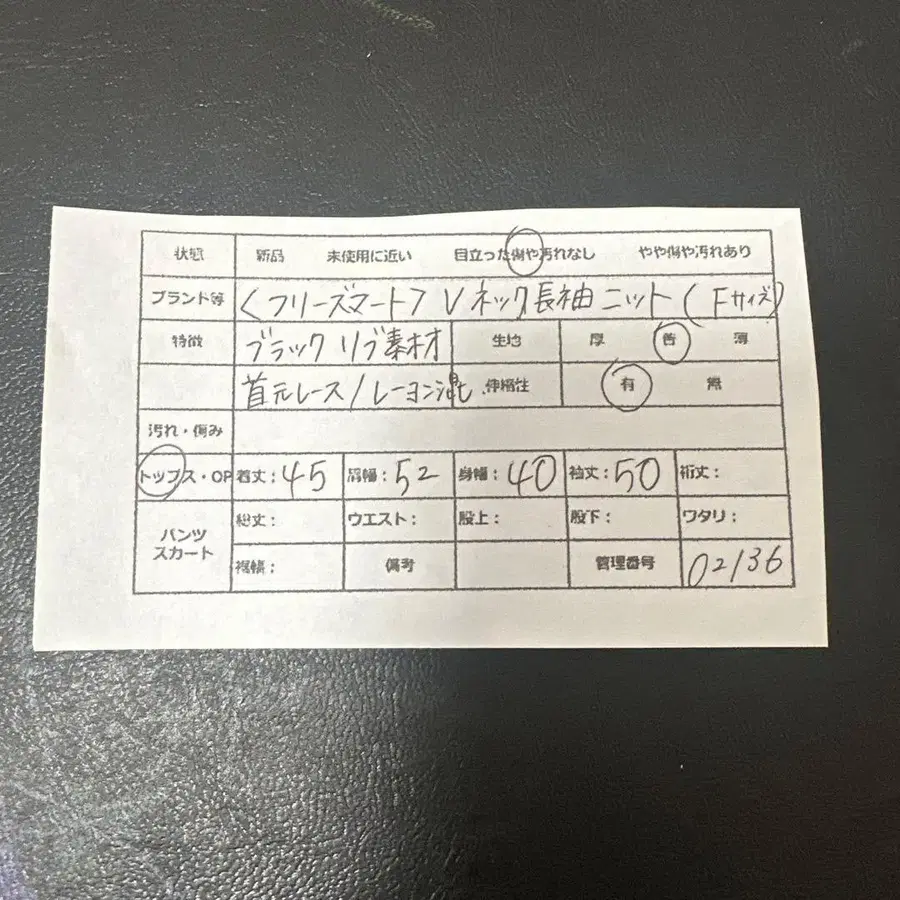 状態 新品 未使用に近い 目立った傷や汚れなし やや傷や汚れあり
ブランド等 <フリーズマート> Vネック長袖ニット(Fサイズ)
特徴 ブラック リブ素材 生地 厚 普 薄
首元レース/レーヨン混 伸縮性 有 無
汚れ・傷み
トップス・OP 着丈:45 肩幅:52 身幅:40 袖丈:50 裄丈:
パンツ スカート
総丈: ウエスト: 股上: 股下: ワタリ:
裾幅: 備考 管理番号 02136